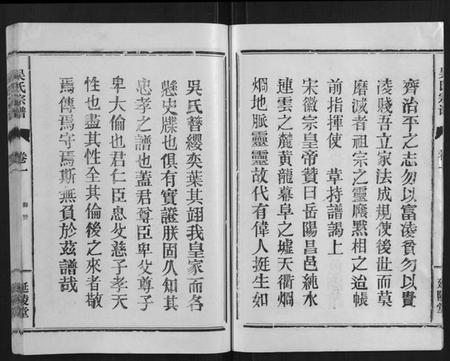 吳氏宗譜
卷一
延陵堂
齊治平之志勿以富淩貧勿以貴
淩賤吾立家法成規使後世而莫
磨滅者祖宗之靈廣黙相之造帳
前指揮使 葦持譜謁上
宋徽宗皇帝贊曰岳陽昌邑純水
連雲之麓黄龍幕阜之墟天衢烱
烱地脈靈靈故代有偉人挺生如
吳氏簪纓奕葉其翊我皇家而各
懸史牒也俱有實證朕固久知其
忠孝之譜也蓋君尊臣卑父尊子
卑大倫也君仁臣忠父慈子孝天
性也盡其性全其倫後之來者敬
焉傳焉守焉斯無負於兹譜哉
吳氏宗譜
卷一
延陵堂